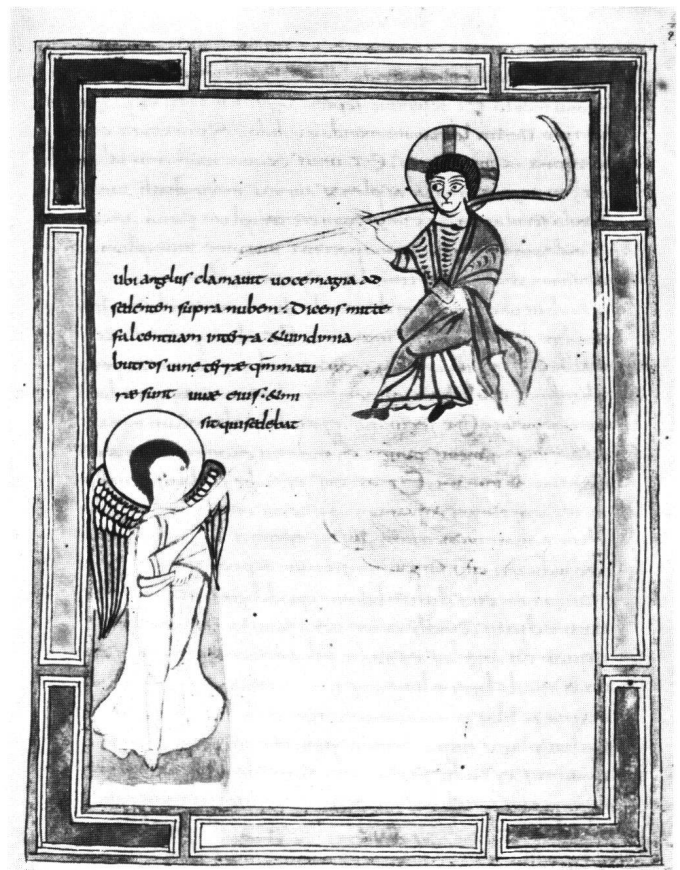 ubi angelus clamavit voce magna ad
sedentem supra nubem. Dicens mitte
falcem tuam in terra & vindimia
butros vine terræ qm̄ matu
ræ sunt uvæ eius. & om
sit qui sedebat